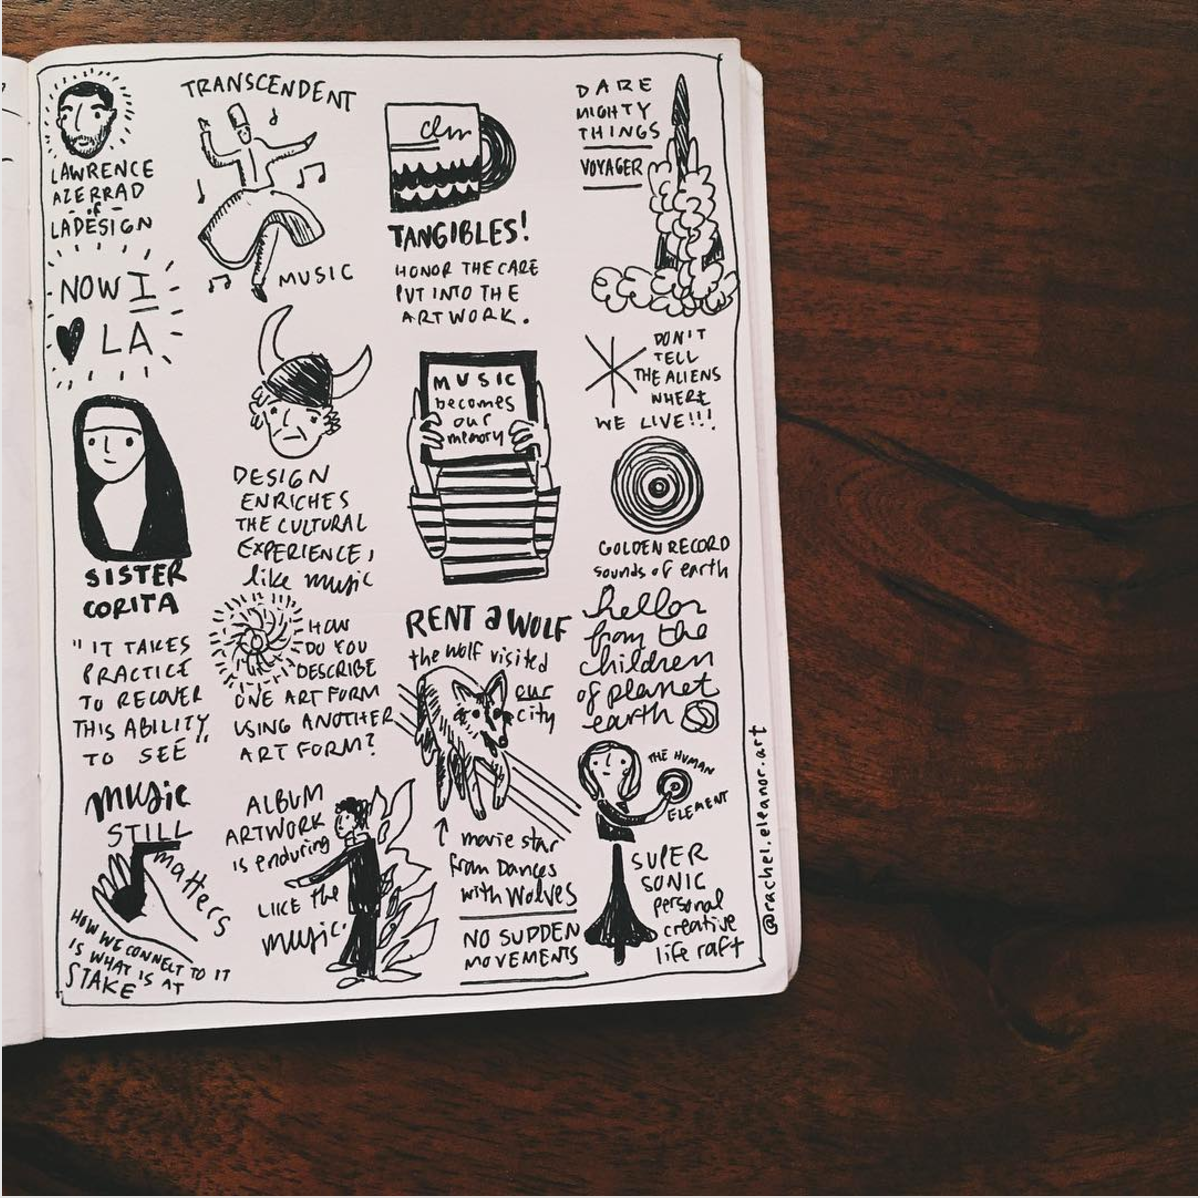 LAWRENCE
AZERRAD
- of -
LADESIGN
NOW I
LA
SISTER
CORITA
"IT TAKES
PRACTICE
TO RECOVER
THIS ABILITY
TO SEE"
music
STILL
matters
HOW WE CONNECT TO IT
IS WHAT IS AT
STAKE
TRANSCENDENT
MUSIC
DESIGN
ENRICHES
THE CULTURAL
EXPERIENCE,
like music
HOW
DO YOU
DESCRIBE
ONE ART FORM
USING ANOTHER
ART FORM?
ALBUM
ARTWORK
is enduring
LIKE the
music.
cm
TANGIBLES!
HONOR THE CARE
PUT INTO THE
ARTWORK.
MUSIC
becomes
our
memory
RENT a WOLF
the wolf visited
our
city
movie star
from Dances
with Wolves
NO SUDDEN
MOVEMENTS
DARE
MIGHTY
THINGS
VOYAGER
DON'T
TELL
THE ALIENS
WHERE
WE LIVE!!!
GOLDEN RECORD
sounds of earth
hello
from the
children
of planet
earth
THE HUMAN
ELEMENT
SUPER
SONIC
personal
creative
life raft
@rachel.eleanor.art